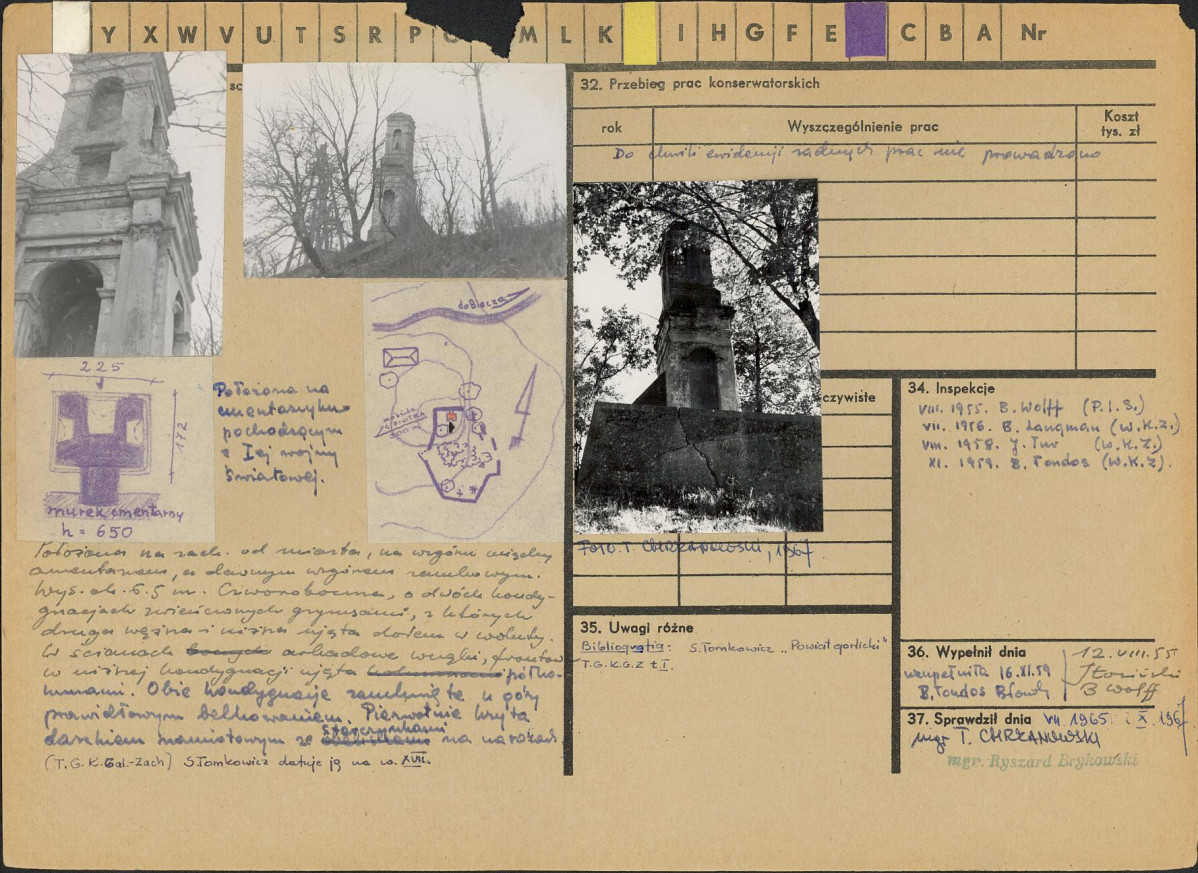 Y X W V U T S R P O M L K I H G F E C B A Nr
32. Przebieg prac konserwatorskich
rok
Wyszczególnienie prac
Koszt
tys. zł
Do chwili ewidencji żadnych prac nie prowadzono
do Biecza
300 m
225
172
murek cmentarny
h = 650
Położona na
cmentarzyku
pochodzącym
z Iej wojny
Światowej.
Położona na zach. od miasta, na wzgórzu między
cmentarzem, a dawnym wzgórzem zamkowym.
Wys. ok. 6.5 m. Czworoboczna, o dwóch kondy-
gnacjach zwieńczonych gzymsami, z których
druga węższa i niższa ujęta dołem w woluty.
W ścianach arkadowe wnęki, frontowa
w niższej kondygnacji ujęta półko-
lumnami. Obie kondygnacje zamknięte u góry
prawidłowym belkowaniem. Pierwotnie kryta
daszkiem namiotowym ze sterczynkami na narożach
(T.G.K.Gal.-Zach) S. Tomkowicz datuje ją na w. XVII.
FOTO. T. CHRZANOWSKI, 1967
czywiste
34. Inspekcje
VIII. 1955. B. Wolff (P.I.S.)
VII. 1956. B. Langman (W.K.Z.)
VIII. 1958. J. Tur (W.K.Z.)
XI. 1959. B. Tondos (W.K.Z).
35. Uwagi różne
Bibliografia: S. Tomkowicz „Powiat gorlicki"
T.G.K.G.Z t. I.
36. Wypełnił dnia
12.VIII.55
uzupełniła 16.XI.59
B. Tondos
B Wolff
37. Sprawdził dnia VII. 1965. i X. 1967
mgr T. CHRZANOWSKI
mgr. Ryszard Brykowski